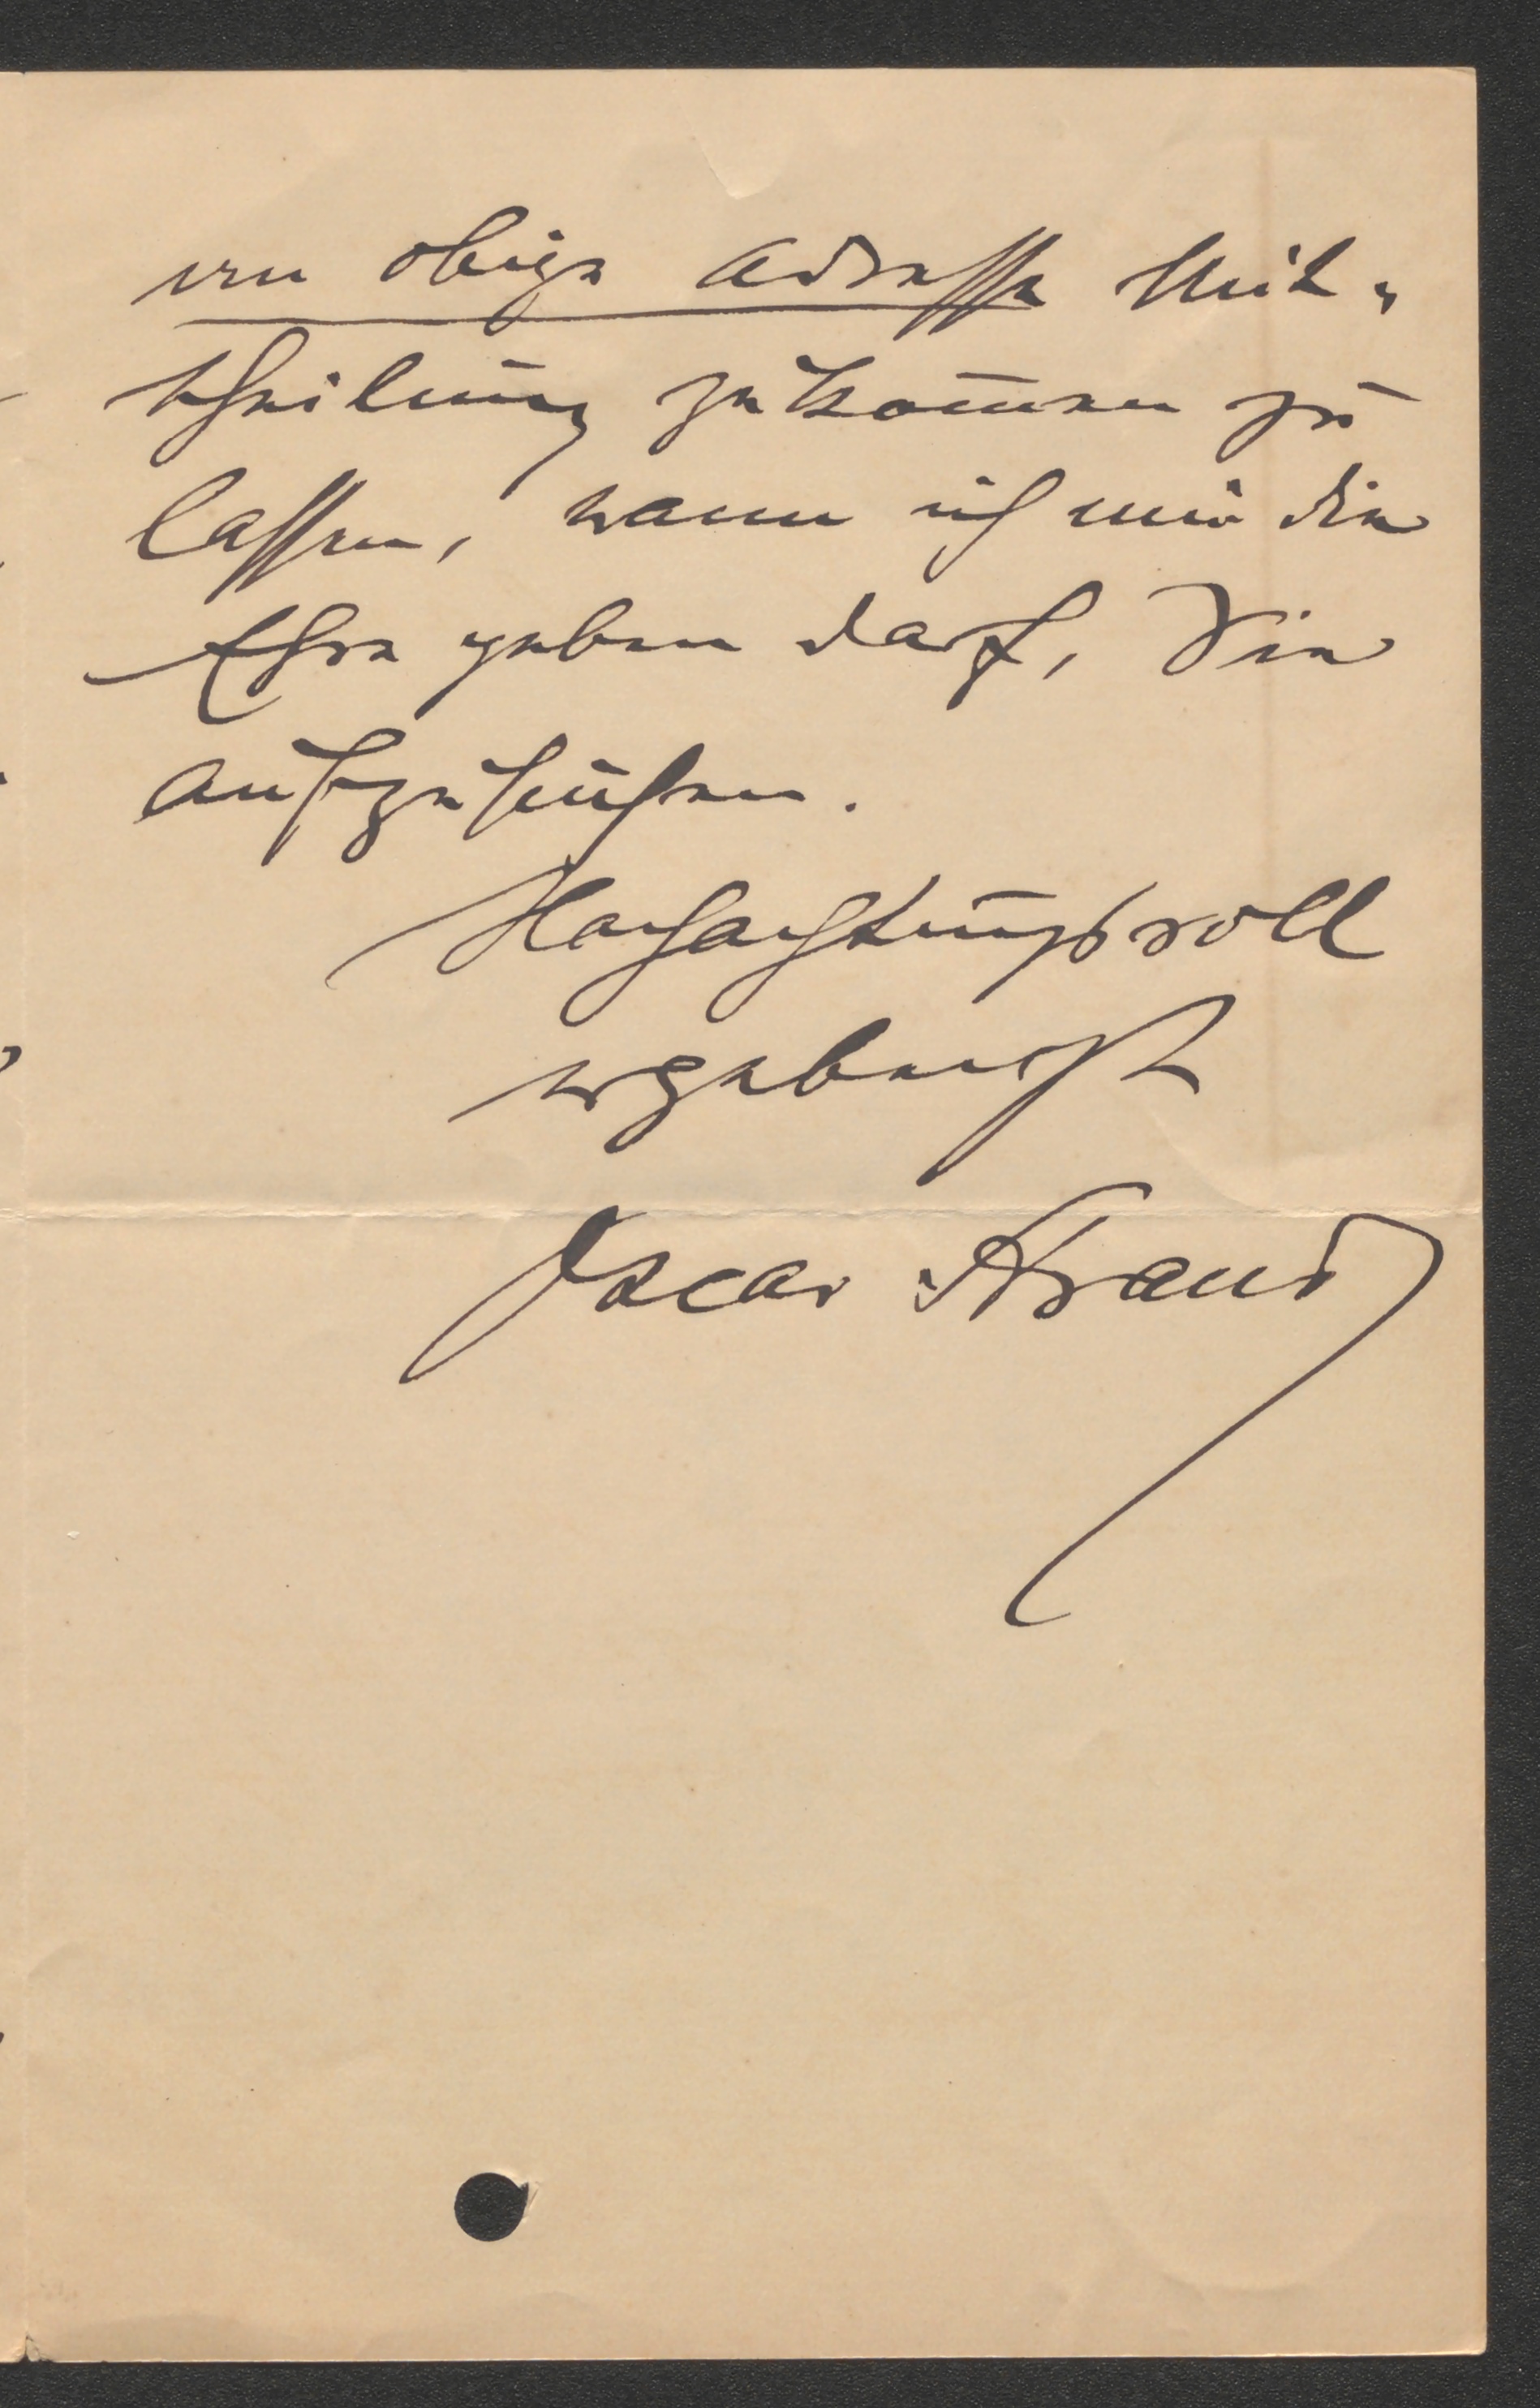 an obige Adresse Mit-
theilung zukom̄en zu
lassen, wann ich mir die
Ehre geben darf, Sie
aufzusuchen.
Hochachtungsvoll
ergebenst
Oscar Straus